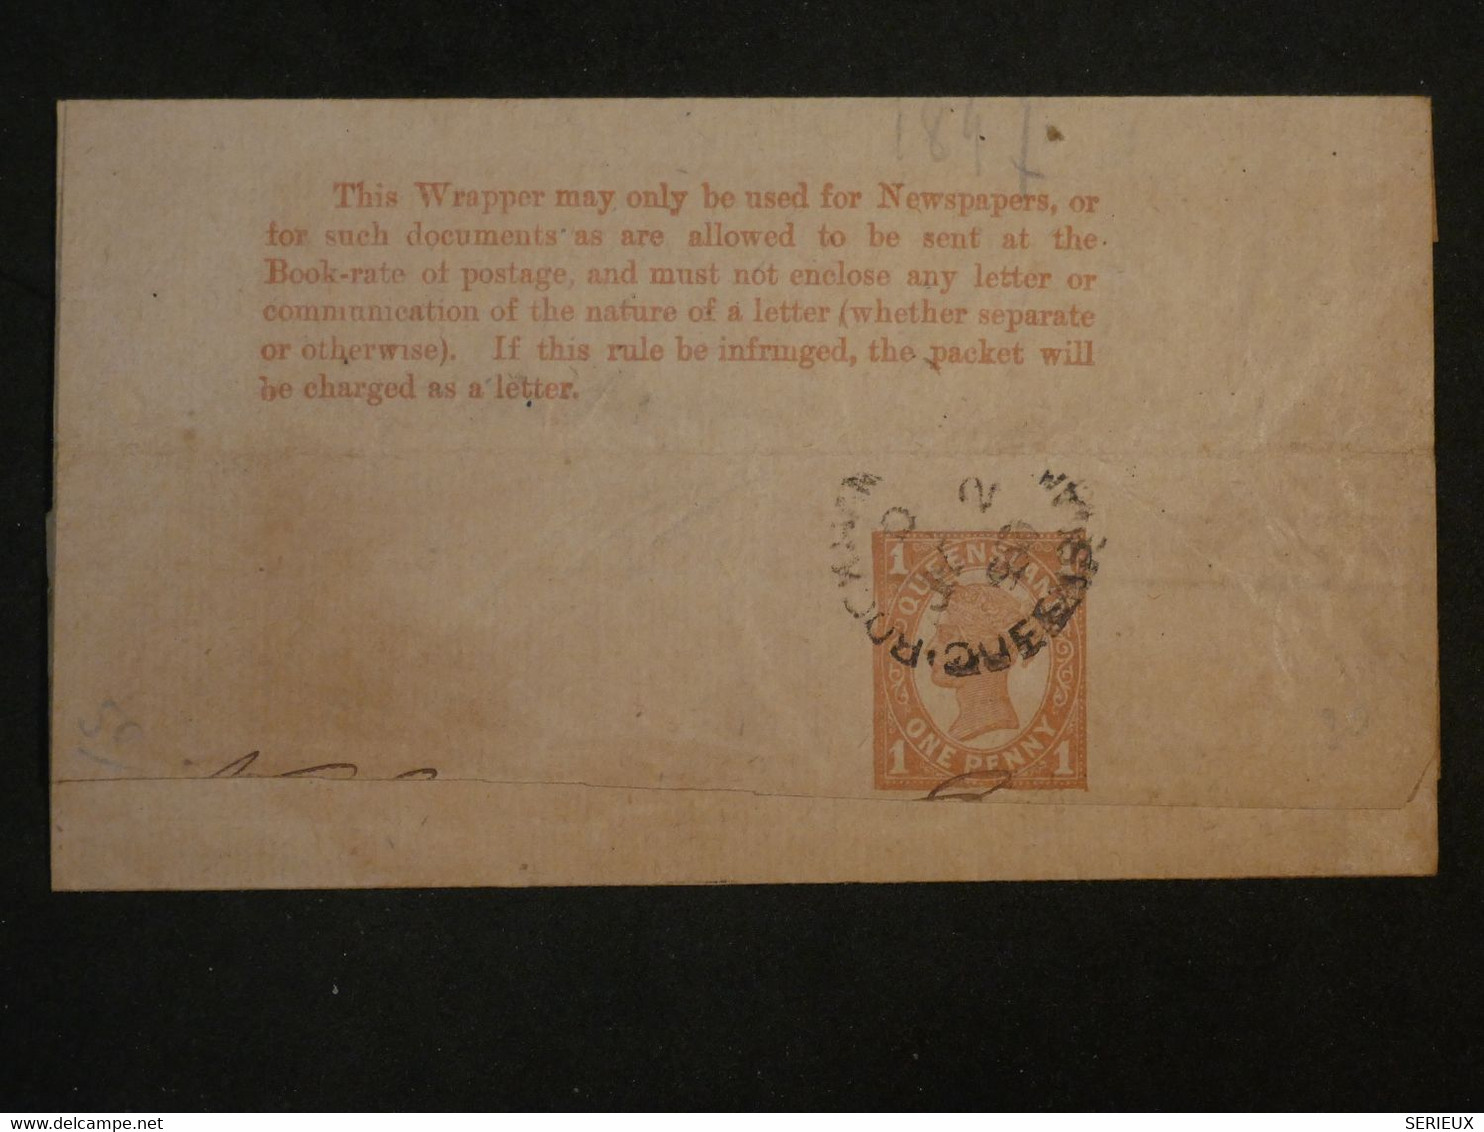 1847
This Wrapper may only be used for Newspapers, or
for such documents as are allowed to be sent at the
Book-rate of postage, and must not enclose any letter or
communication of the nature of a letter (whether separate
or otherwise). If this rule be infringed, the packet will
be charged as a letter.
1 1
QUEENSLAND
ONE PENNY
1 1
50
delcampe.net
SERIEUX